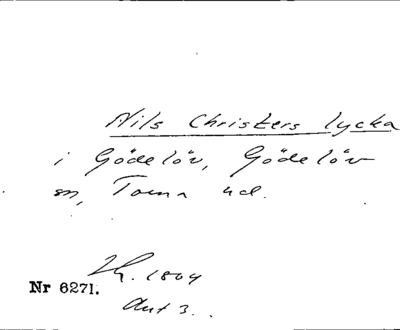 Nils Christers lycka
i Gödelöv, Gödelöv
sn, Torna hd.
Lh. 1804
Nr 6271.
Akt 3.